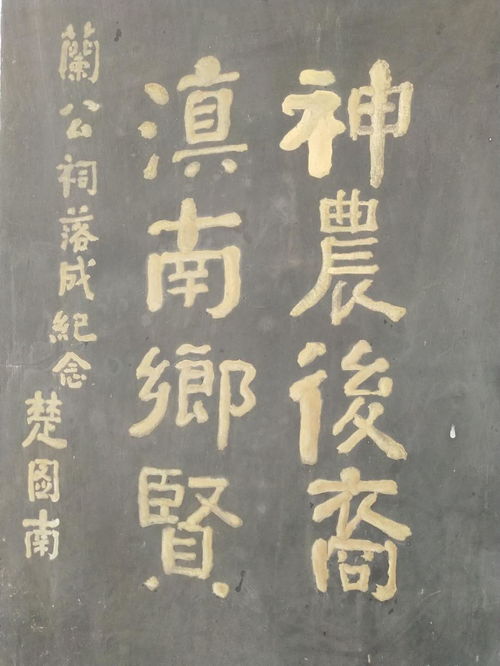 神農後裔
滇南鄉賢
蘭公祠落成紀念
楚圖南